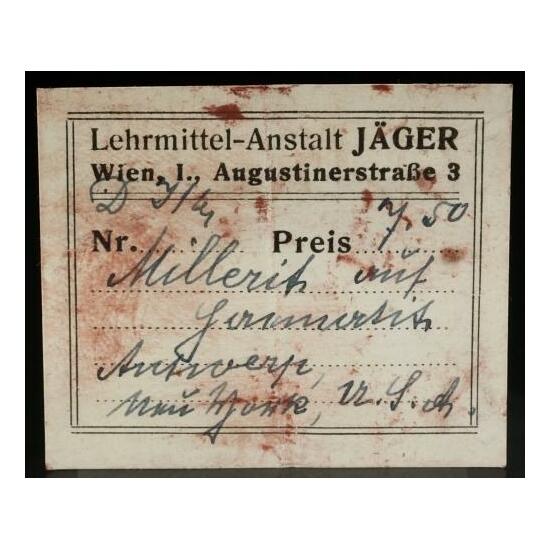 Lehrmittel-Anstalt JÄGER
Wien, I., Augustinerstraße 3
7.50
Nr. Preis
Millerit auf
Haematit
Antwerp,
Neu York, U.S.A.